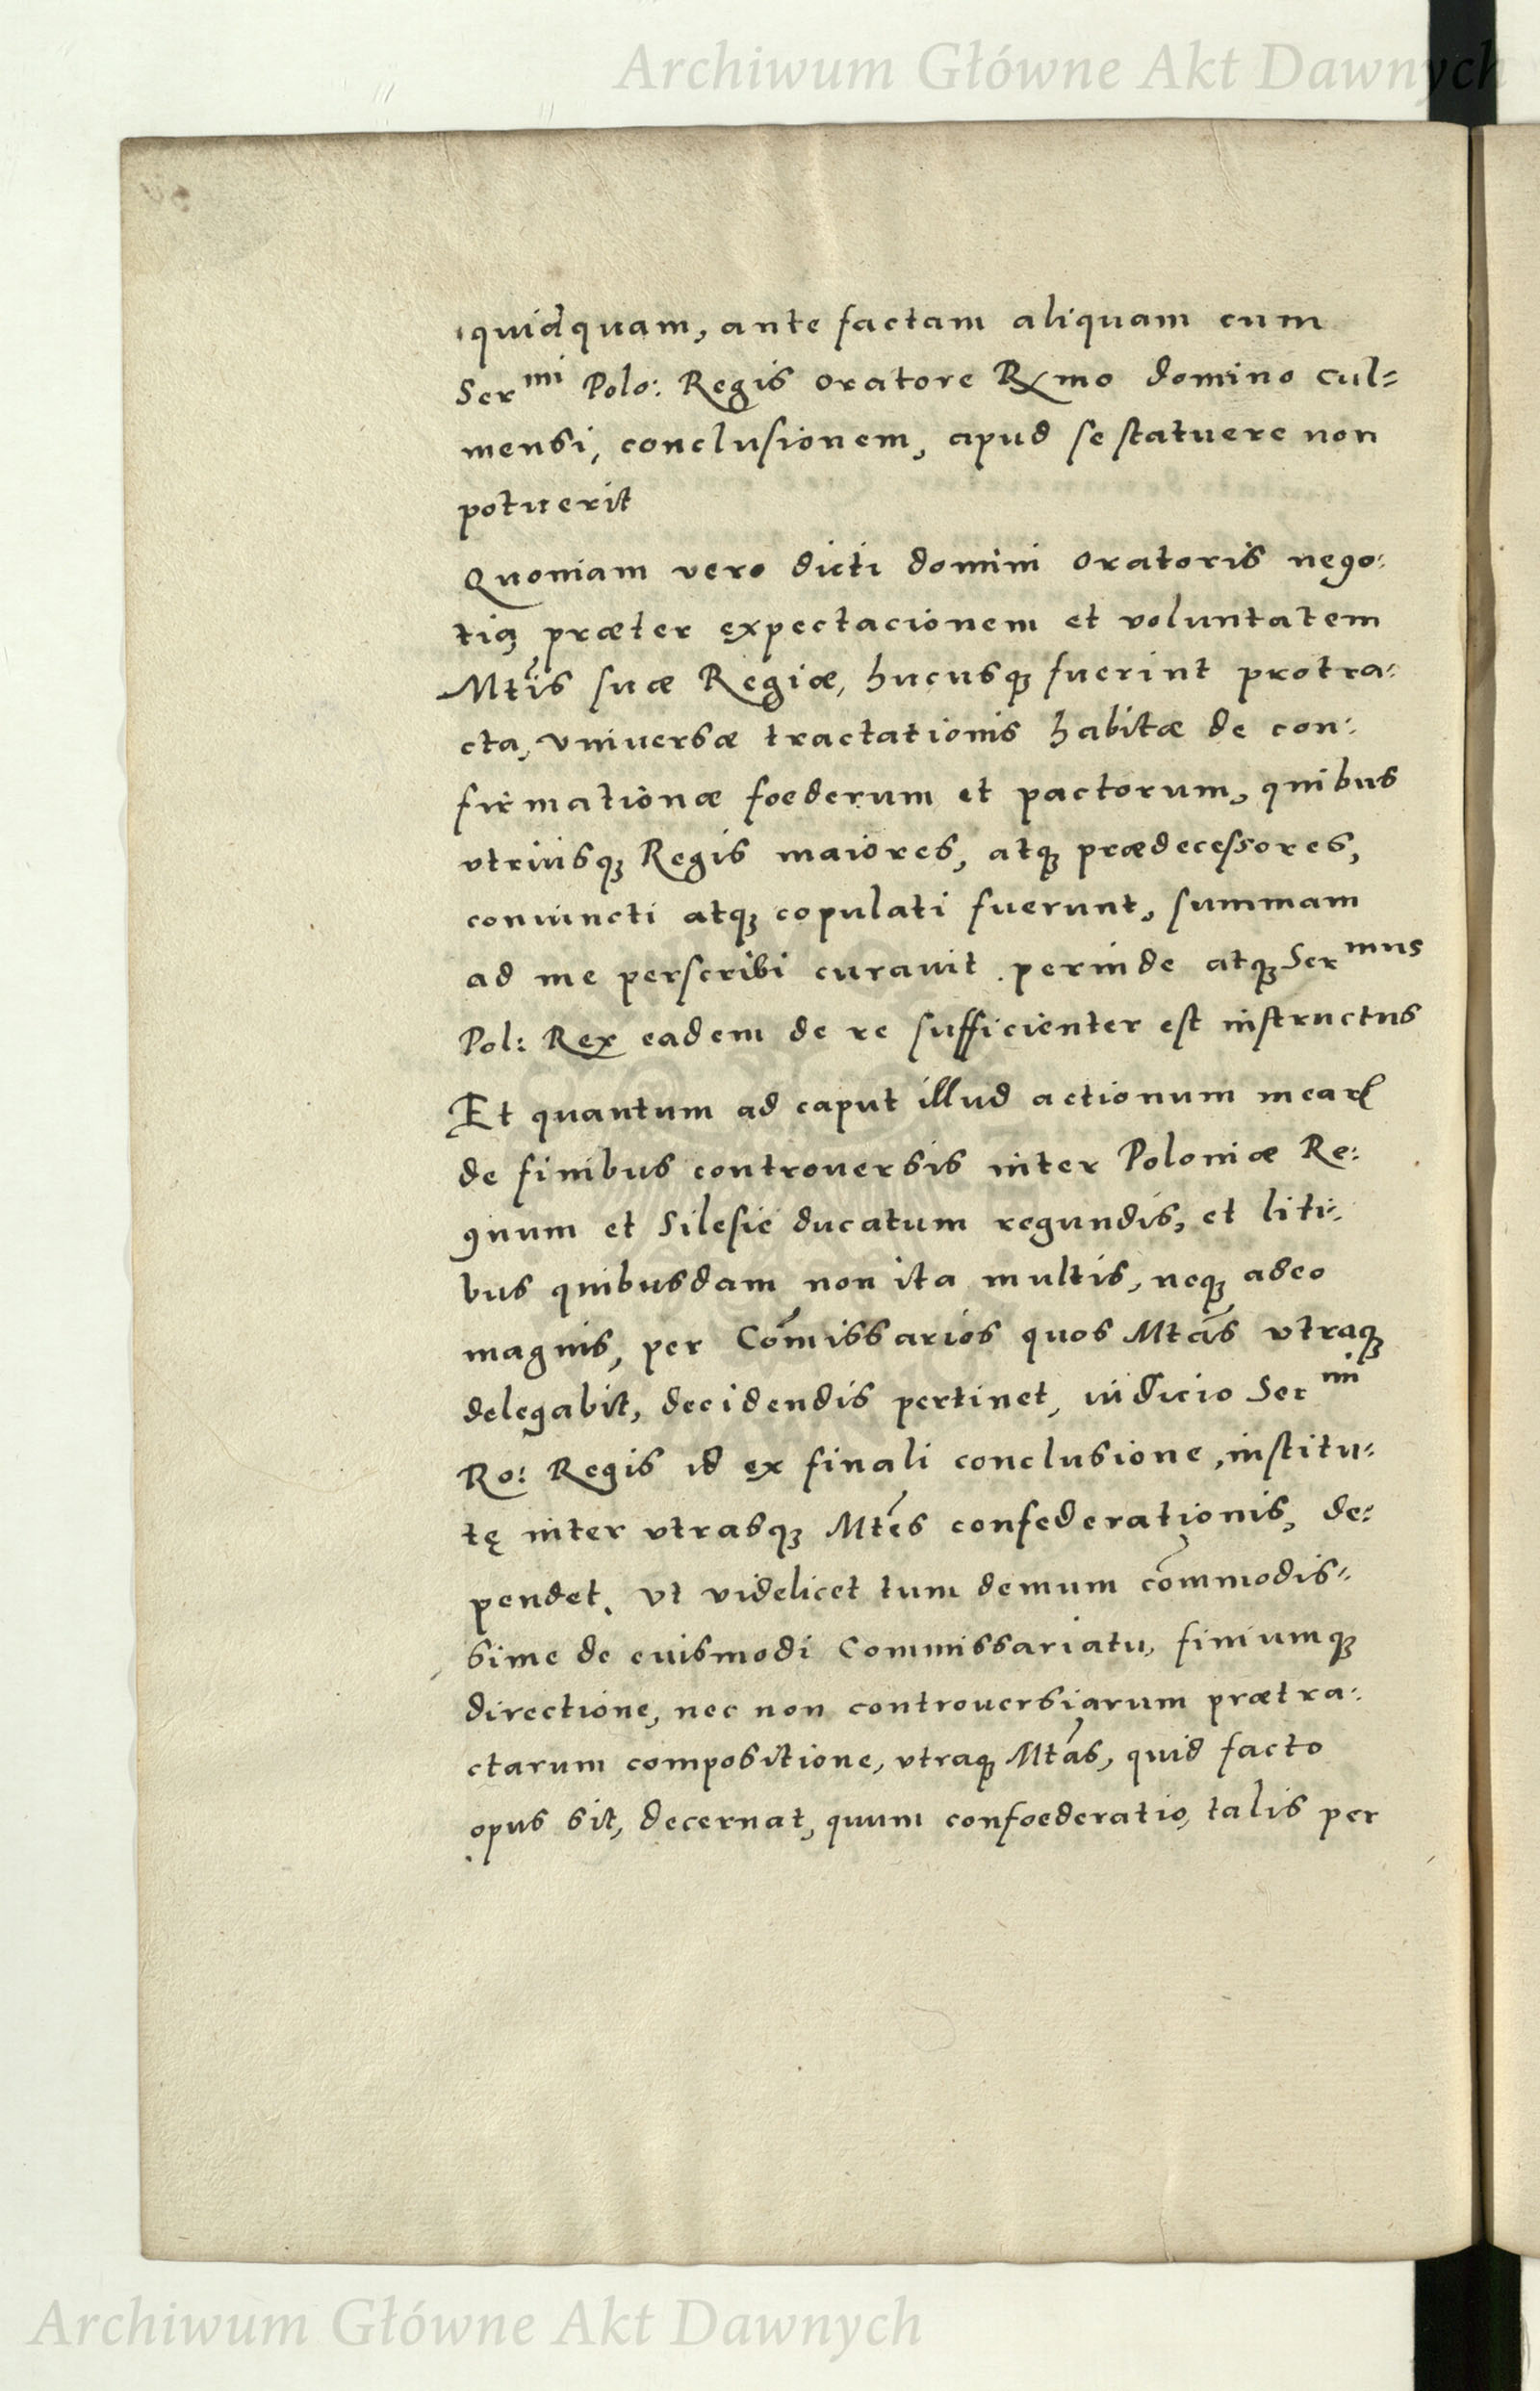 Archiwum Główne Akt Dawnych
quidquam, ante factam aliquam cum
Ser^mi Polo: Regis oratore Rxmo domino cul=
mensi, conclusionem, apud se statuere non
potuerit
Quoniam vero dicti domini oratoris nego:
tia, præter expectacionem et voluntatem
Mtis suæ Regiæ, hucusq; fuerint protra:
cta, vniuersæ tractationis habitæ de con:
firmationæ foederum et pactorum, quibus
vtriusq; Regis maiores, atq; prædecessores,
coniuncti atq; copulati fuerunt, summam
ad me perscribi curauit. perinde atq; Ser^mus
Pol: Rex eadem de re sufficienter est instructus
Et quantum ad caput illud actionum mear[um]
de finibus controuersis inter Poloniæ Re:
gnum et Silesie ducatum regundis, et liti:
bus quibusdam non ita multis, neq; adeo
magnis, per Comissarios quos Mtas vtraq;
delegabit, decidendis pertinet, iudicio Ser^mi
Ro: Regis id ex finali conclusione, institu:
tę inter vtrasq; Mtes confederationis, de:
pendet. Vt videlicet tum demum commodis:
sime de euismodi Commissariatu, finiumq;
directione, nec non controuersiarum prætra:
ctarum compositione, vtraq; Mtas, quid facto
opus sit, decernat, quum confoederatio, talis per
Archiwum Główne Akt Dawnych